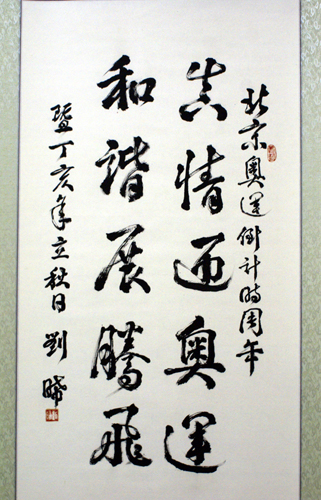 北京奥運倒计時周年
真情迎奥運
和諧展騰飛
暨丁亥年立秋日 劉曦